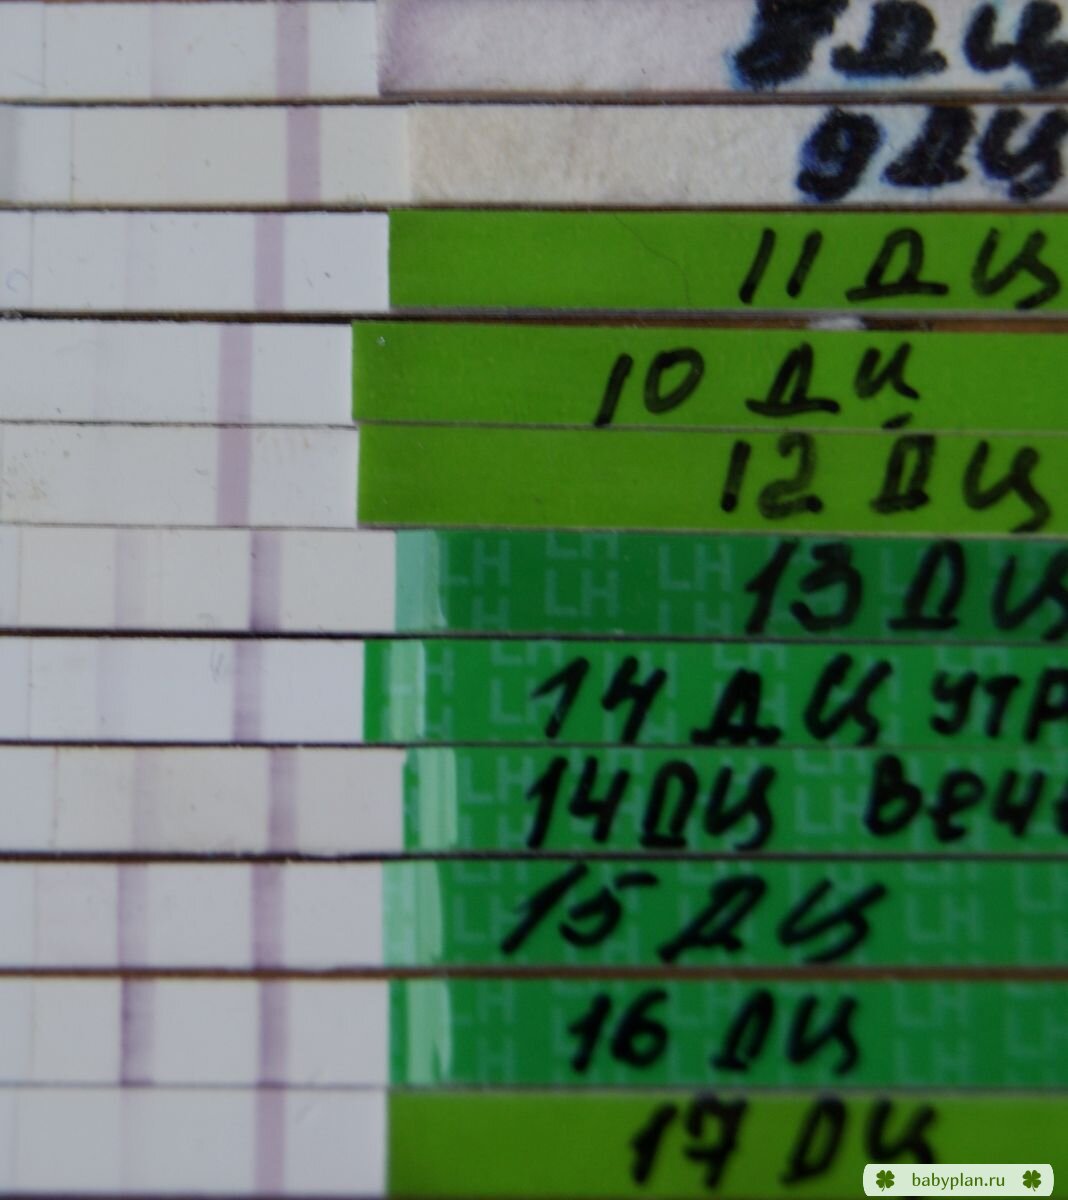 8 ДЦ
9 ДЦ
11 ДЦ
10 ДЦ
12 ДЦ
LH LH LH LH 13 ДЦ
14 ДЦ УТР
14 ДЦ Вече
15 ДЦ
16 ДЦ
17 ДЦ
babyplan.ru